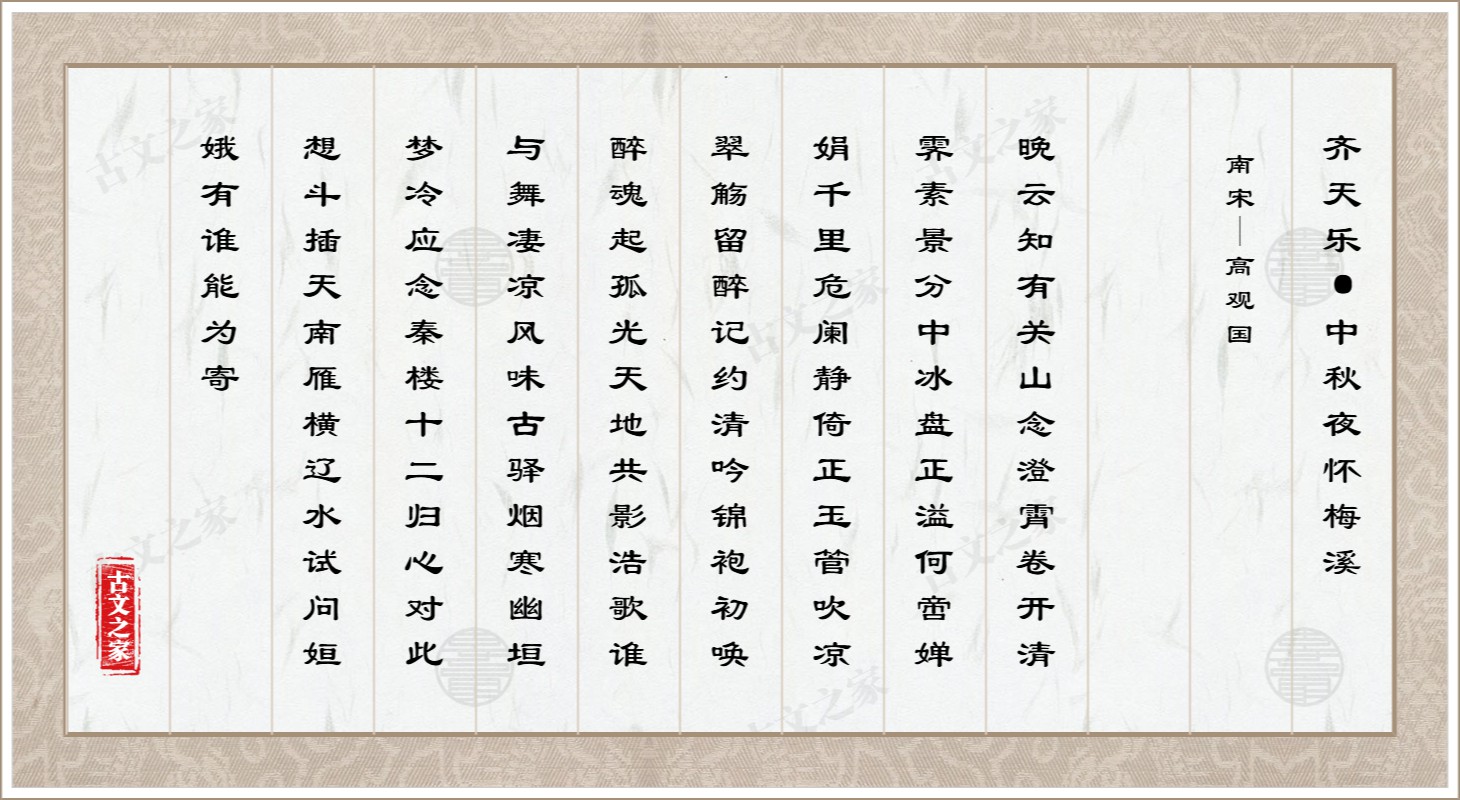 齐天乐●中秋夜怀梅溪
南宋—高观国
晚云知有关山念澄霄卷开清
霁素景分中冰盘正溢何啻婵
娟千里危阑静倚正玉管吹凉
翠觞留醉记约清吟锦袍初唤
醉魂起孤光天地共影浩歌谁
与舞凄凉风味古驿烟寒幽垣
梦冷应念秦楼十二归心对此
想斗插天南雁横辽水试问姮
娥有谁能为寄
古文之家
古文之家
古文之家
古文之家
古文之家
古文之家
古文之家